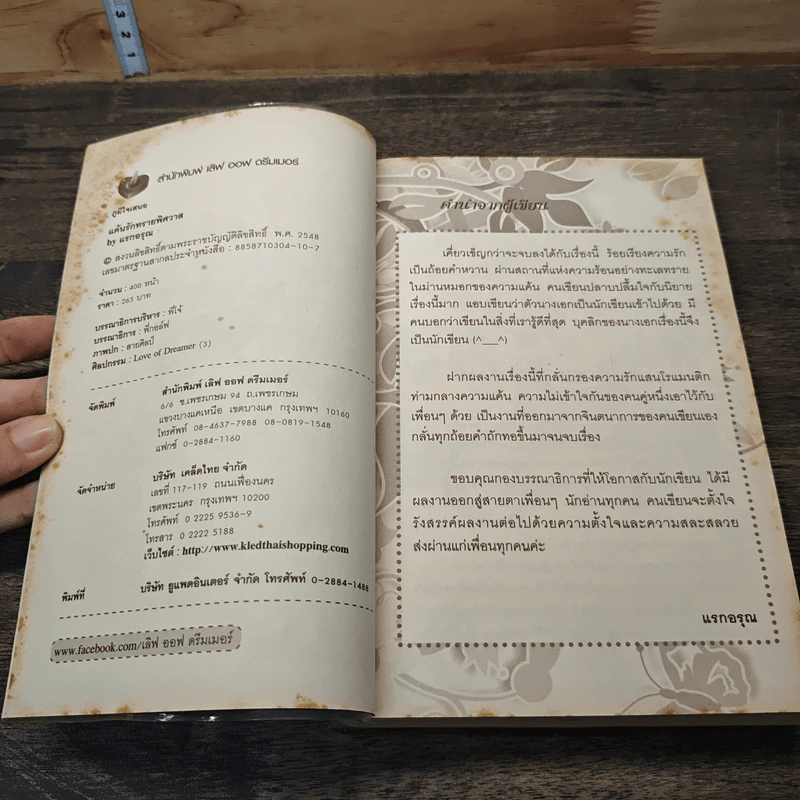 สำนักพิมพ์ เลิฟ ออฟ ดรีมเมอร์
ภูมิใจเสนอ
แค้นรักทรายพิศวาส
by แรกอรุณ
© สงวนลิขสิทธิ์ตามพระราชบัญญัติลิขสิทธิ์ พ.ศ. 2548
เลขมาตรฐานสากลประจำหนังสือ : 8858710304-10-7
จำนวน : 400 หน้า
ราคา : 265 บาท
บรรณาธิการบริหาร : พี่โจ้
บรรณาธิการ : พี่กอล์ฟ
ภาพปก : สายศิลป์
ศิลปกรรม : Love of Dreamer (3)
จัดพิมพ์
สำนักพิมพ์ เลิฟ ออฟ ดรีมเมอร์
6/6 ซ.เพชรเกษม 94 ถ.เพชรเกษม
แขวงบางแคเหนือ เขตบางแค กรุงเทพฯ 10160
โทรศัพท์ 08-4637-7988 08-0819-1548
แฟกซ์ 0-2884-1160
จัดจำหน่าย
บริษัท เคล็ดไทย จำกัด
เลขที่ 117-119 ถนนเฟื่องนคร
เขตพระนคร กรุงเทพฯ 10200
โทรศัพท์ 0 2225 9536-9
โทรสาร 0 2222 5188
เว็บไซต์ : http://www.kledthaishopping.com
พิมพ์ที่ บริษัท ยูแพดอินเตอร์ จำกัด โทรศัพท์ 0-2884-1488
www.facebook.com/เลิฟ ออฟ ดรีมเมอร์
คำนำจากผู้เขียน
เคี่ยวเข็ญกว่าจะจบลงได้กับเรื่องนี้ ร้อยเรียงความรัก
เป็นถ้อยคำหวาน ผ่านสถานที่แห่งความร้อนอย่างทะเลทราย
ในม่านหมอกของความแค้น คนเขียนปลาบปลื้มใจกับนิยาย
เรื่องนี้มาก แอบเขียนว่าตัวนางเอกเป็นนักเขียนเข้าไปด้วย มี
คนบอกว่าเขียนในสิ่งที่เรารู้ดีที่สุด บุคลิกของนางเอกเรื่องนี้จึง
เป็นนักเขียน (^___^)
ฝากผลงานเรื่องนี้ที่กลั่นกรองความรักแสนโรแมนติก
ท่ามกลางความแค้น ความไม่เข้าใจกันของคนคู่หนึ่งเอาไว้กับ
เพื่อนๆ ด้วย เป็นงานที่ออกมาจากจินตนาการของคนเขียนเอง
กลั่นทุกถ้อยคำถักทอขึ้นมาจนจบเรื่อง
ขอบคุณกองบรรณาธิการที่ให้โอกาสกับนักเขียน ได้มี
ผลงานออกสู่สายตาเพื่อนๆ นักอ่านทุกคน คนเขียนจะตั้งใจ
รังสรรค์ผลงานต่อไปด้วยความตั้งใจและความสละสลวย
ส่งผ่านแก่เพื่อนทุกคนค่ะ
แรกอรุณ
3
2
1